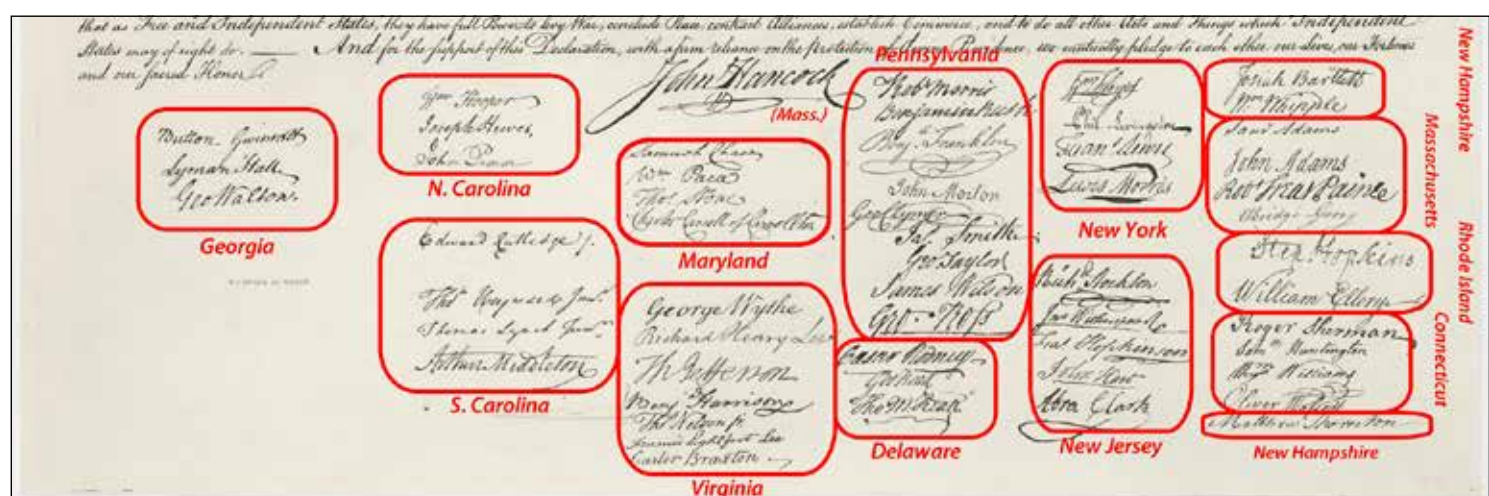 that as Free and Independent States, they have full Power to levy War, conclude Peace, contract Alliances, establish Commerce, and to do all other Acts and Things which Independent
States may of right do. — And for the support of this Declaration, with a firm reliance on the protection of Providence, we mutually pledge to each other our Lives, our Fortunes
and our sacred Honor
Button Gwinnett
Lyman Hall
Geo Walton.
Georgia
Wm Hooper
Joseph Hewes,
John Penn
N. Carolina
Edward Rutledge
Thos Heyward Junr.
Thomas Lynch Junr.
Arthur Middleton
S. Carolina
John Hancock
(Mass.)
Samuel Chase
Wm Paca
Thos Stone
Charles Carroll of Carrollton
Maryland
George Wythe
Richard Henry Lee
Th Jefferson
Benj Harrison
Thos Nelson jr.
Francis Lightfoot Lee
Carter Braxton
Virginia
Pennsylvania
Robt Morris
Benjamin Rush
Benj Franklin
John Morton
Geo Clymer
Jas Smith
Geo Taylor
James Wilson
Geo. Ross
Caesar Rodney
Geo Read
Tho M:Kean
Delaware
Phil Livingston
Frans Lewis
Lewis Morris
New York
Richd Stockton
Jno Witherspoon
Fras Hopkinson
John Hart
Abra Clark
New Jersey
Josiah Bartlett
Wm Whipple
Saml Adams
John Adams
Robt Treat Paine
Elbridge Gerry
Step Hopkins
William Ellery
Roger Sherman
Saml Huntington
Wm Williams
Oliver Wolcott
Matthew Thornton
New Hampshire
New Hampshire
Massachusetts
Rhode Island
Connecticut